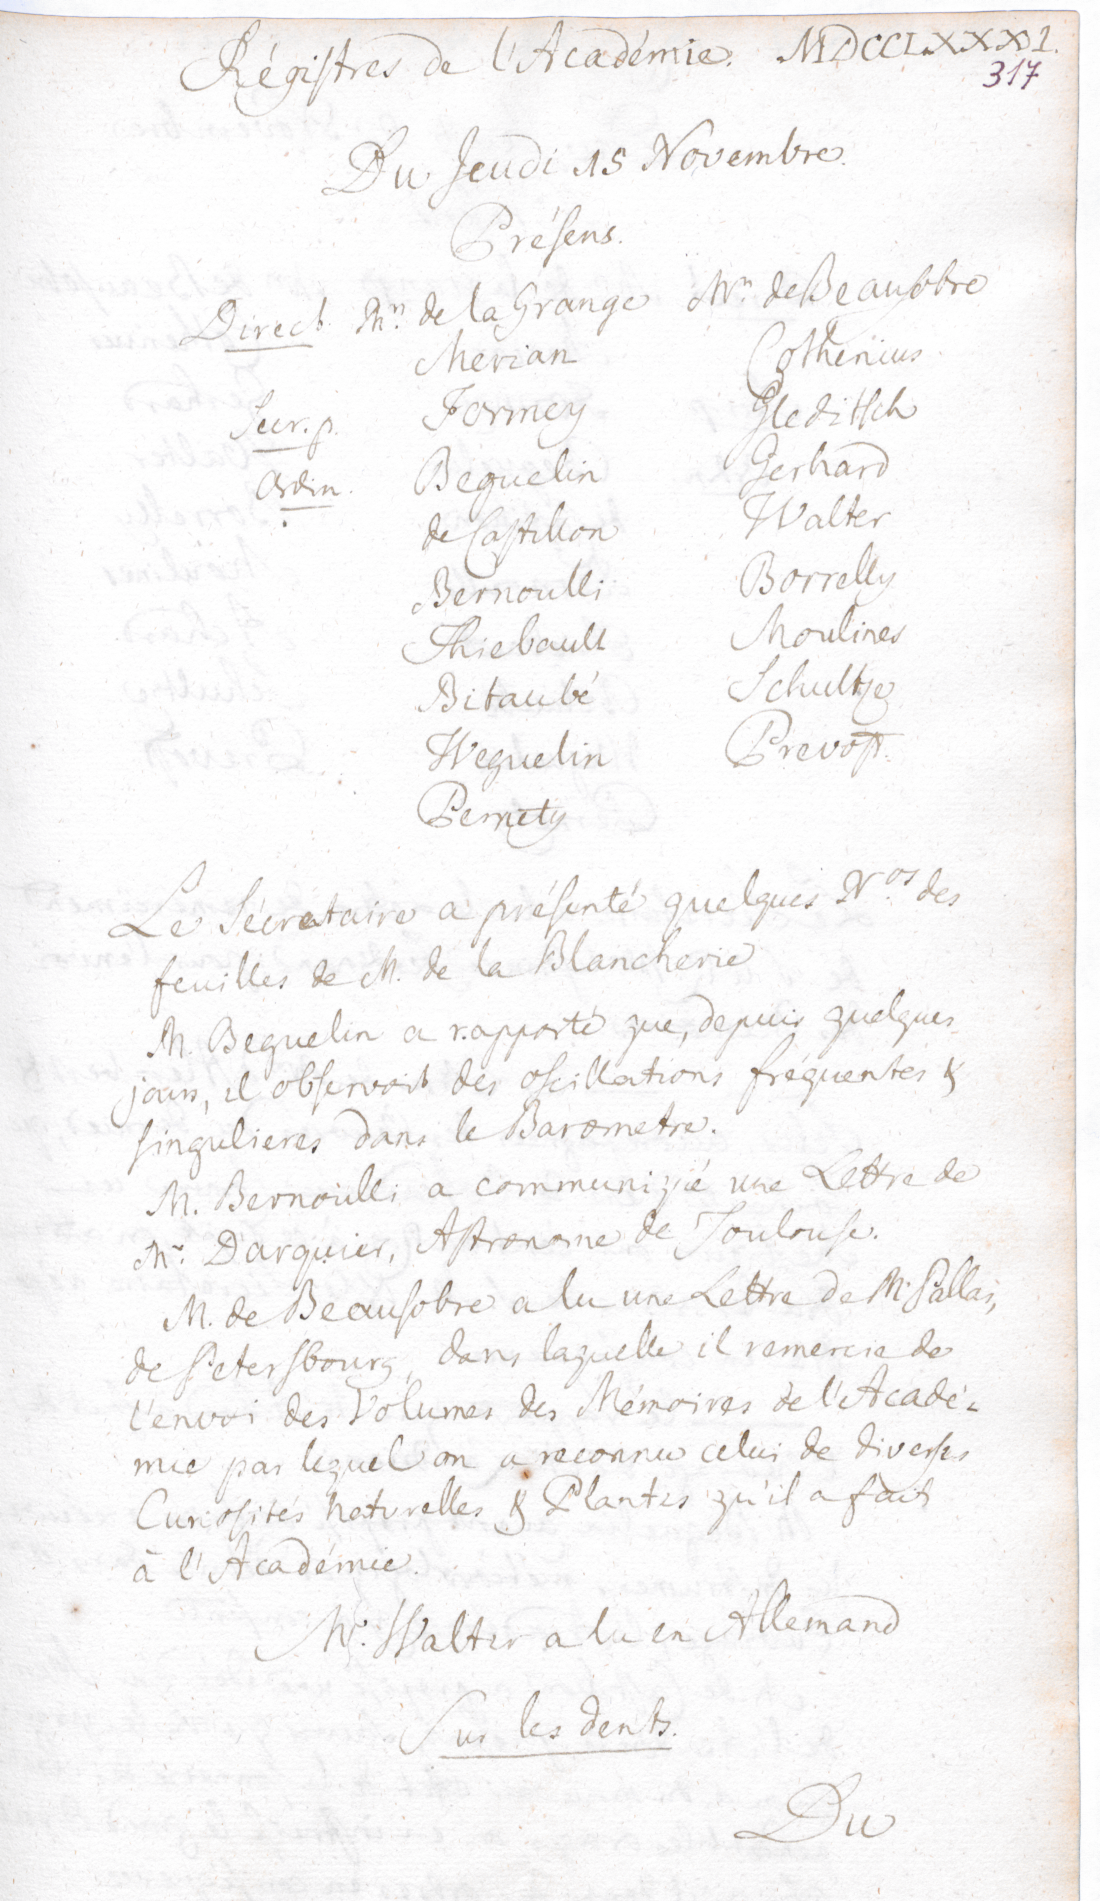 Régistres de l'Académie. MDCCLXXXI.
317
Du Jeudi 15 Novembre.
Présens.
Direct. Mrs. de la Grange Mrs. de Beausobre
Merian Cothenius
Secr. p. Formey Gleditsch
Ordin. Beguelin Gerhard
de Castillon Walter
Bernoulli Borrelly
Thiebault Moulines
Bitaubé Schultze
Weguelin Prevost.
Pernety
Le Sécretaire a présenté quelques N.os des
feuilles de M. de la Blancherie
M. Beguelin a rapporté que, depuis quelques
jours, il observoit des oscillations fréquentes &
singulieres dans le Barometre.
M. Bernoulli a communiqué une Lettre de
Mr. Darquier, Astronome de Toulouse.
M. de Beausobre a lu une Lettre de Mr Pallas,
de Petersbourg, dans laquelle il remercie de
l'envoi des Volumes des Mémoires de l'Acadé-
mie par lequel on a reconnu celui de diverses
Curiosités naturelles & Plantes qu'il a fait
à l'Académie.
Mr. Walter a lu en Allemand
Sur les dents.
Du